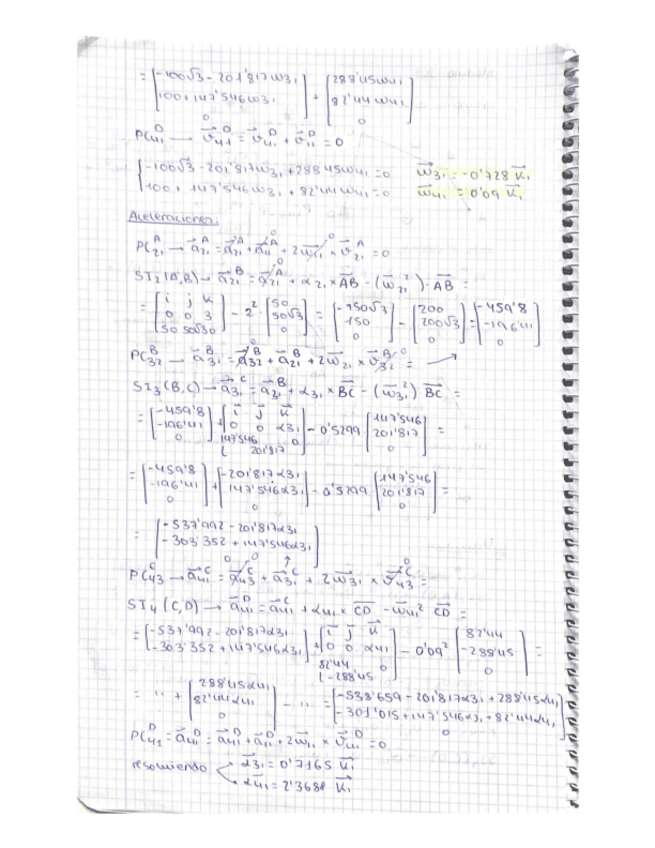 = [-100√3 - 201'817ω31 / 100 + 147'546ω31] + [288'45ω41 / 82'44ω41 / 0]
PC41^D → v41^D = v41^D + v11^D = 0
{-100√3 - 201'817ω31 + 288'45ω41 = 0   ω31 = -0'728 K1
100 + 147'546ω31 + 82'44ω41 = 0   ω41 = 0'09 K1
Aceleraciones:
PC21^A → a21^A = a21^A + a11^A + 2ω11 × v21^A = 0
SI2(A,B) → a21^B = a21^A + α21 × AB - (ω21²)·AB =
= [i j k / 0 0 3 / 50 50√3 0] - 2² · [50 / 50√3 / 0] = [-150√3 / 150 / 0] - [200 / 200√3 / 0] = [-459'8 / -196'41 / 0]
PC32^B → a31^B = a32^B + a21^B + 2ω21 × v32^B = →
SI3(B,C) → a31^C = a31^B + α31 × BC - (ω31²) BC =
= [-459'8 / -196'41 / 0] + [i j k / 0 0 α31 / 147'546 201'817 0] - 0'5299 · [147'546 / 201'817 / 0] =
= [-459'8 / -196'41 / 0] + [-201'817α31 / 147'546α31 / 0] - 0'5299 [147'546 / 201'817 / 0] =
= [-537'992 - 201'817α31 / -303'352 + 147'546α31 / 0]
PC43^C → a41^C = a43^C + a31^C + 2ω31 × v43^C =
SI4(C,D) → a41^D = a41^C + α41 × CD - ω41² CD =
= [-537'992 - 201'817α31 / -303'352 + 147'546α31] + [i j k / 0 0 α41 / 82'44 -288'45] - 0'09² [82'44 / -288'45 / 0] =
= '' + [288'45α41 / 82'44α41 / 0] - ... = [-538'659 - 201'817α31 + 288'45α41 / -301'015 + 147'546α31 + 82'44α41 / 0]
PC41^D = a41^D = a41^D + a11^D + 2ω11 × v41^D = 0
resolviendo < α31 = 0'7165 K1
α41 = 2'3688 K1